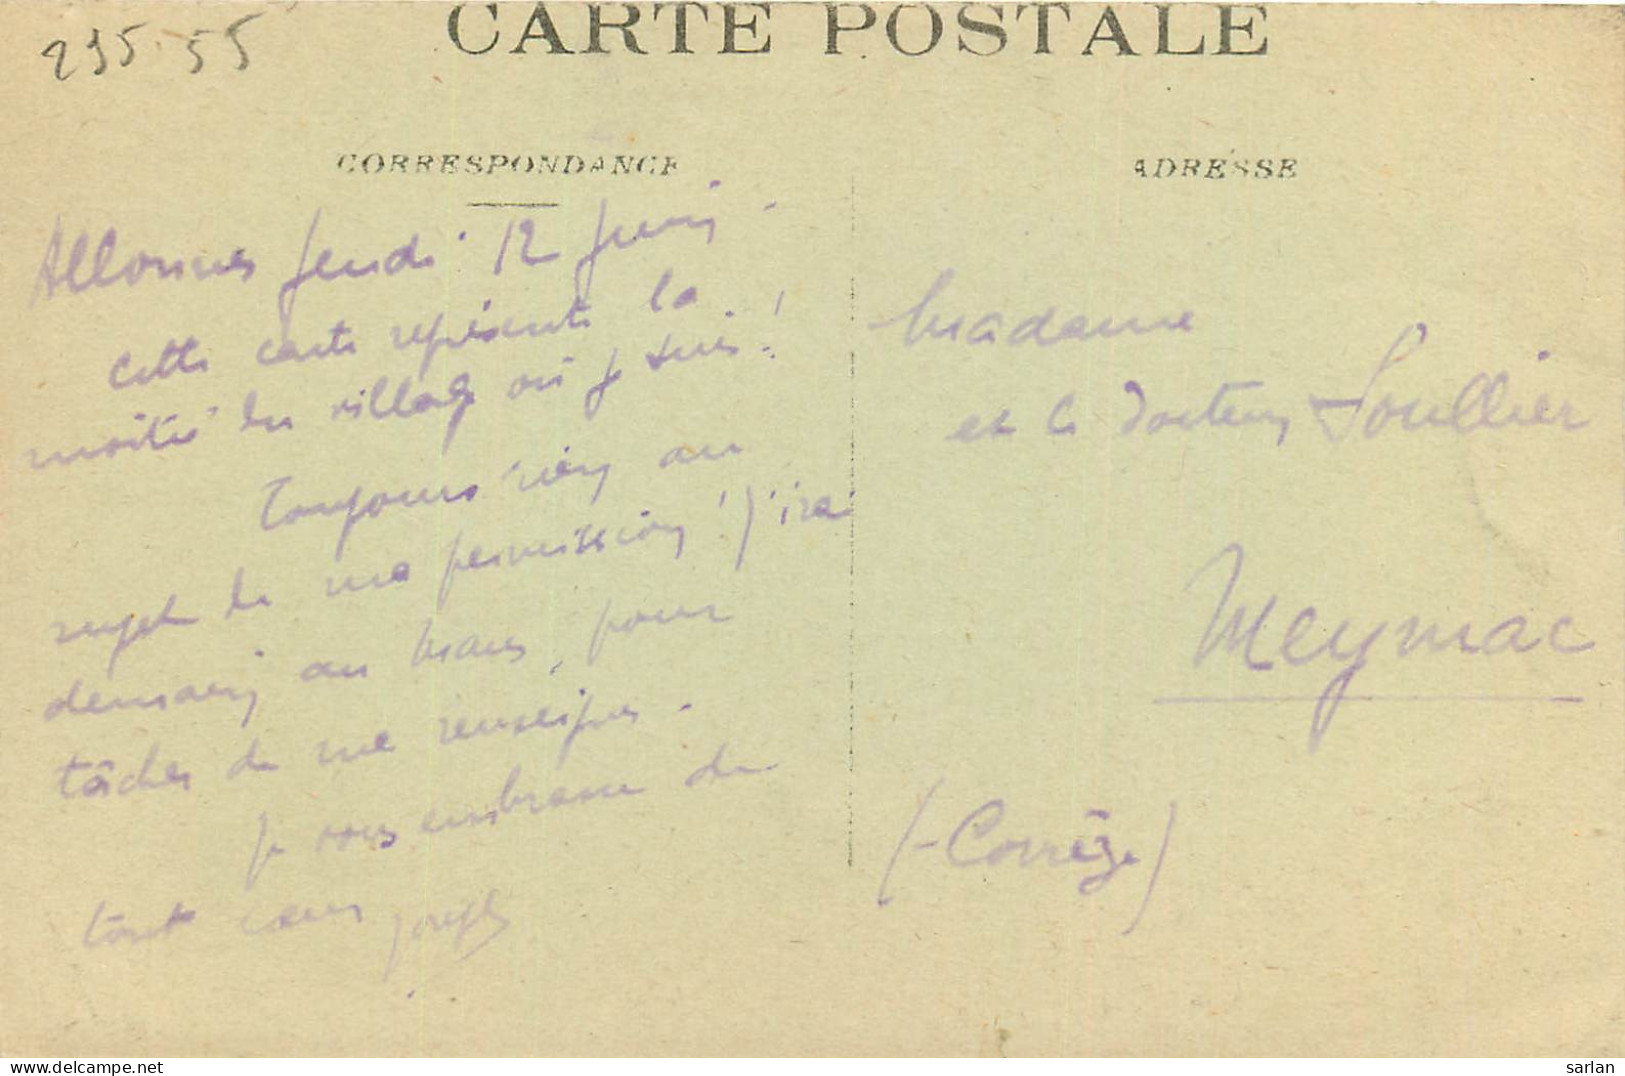 295.55
CARTE POSTALE
CORRESPONDANCE
ADRESSE
Allonnes jeudi 12 juin.
Cette carte représente la
moitié du village où je suis !
Toujours rien au
sujet de ma permission ! J'irai
demain au Mans, pour
tâcher de me renseigner.
Je vous embrasse de
tout cœur Joseph
Madame
et le Docteur Soullier
Meymac
(-Corrèze)
delcampe.net
sarlan